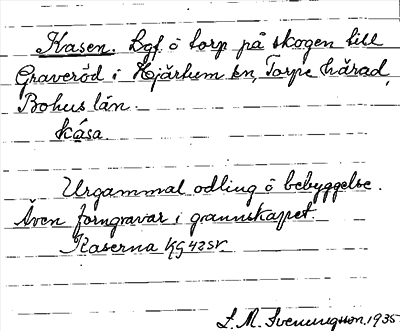 Kasen. Lgf. o torp på skogen till
Graveröd i Hjärtum sn, Torpe härad,
Bohus län.
kása
Urgammal odling o bebyggelse.
Även forngravar i grannskapet.
Kaserna KG 42 sv.
L. M. Svenungsson, 1935